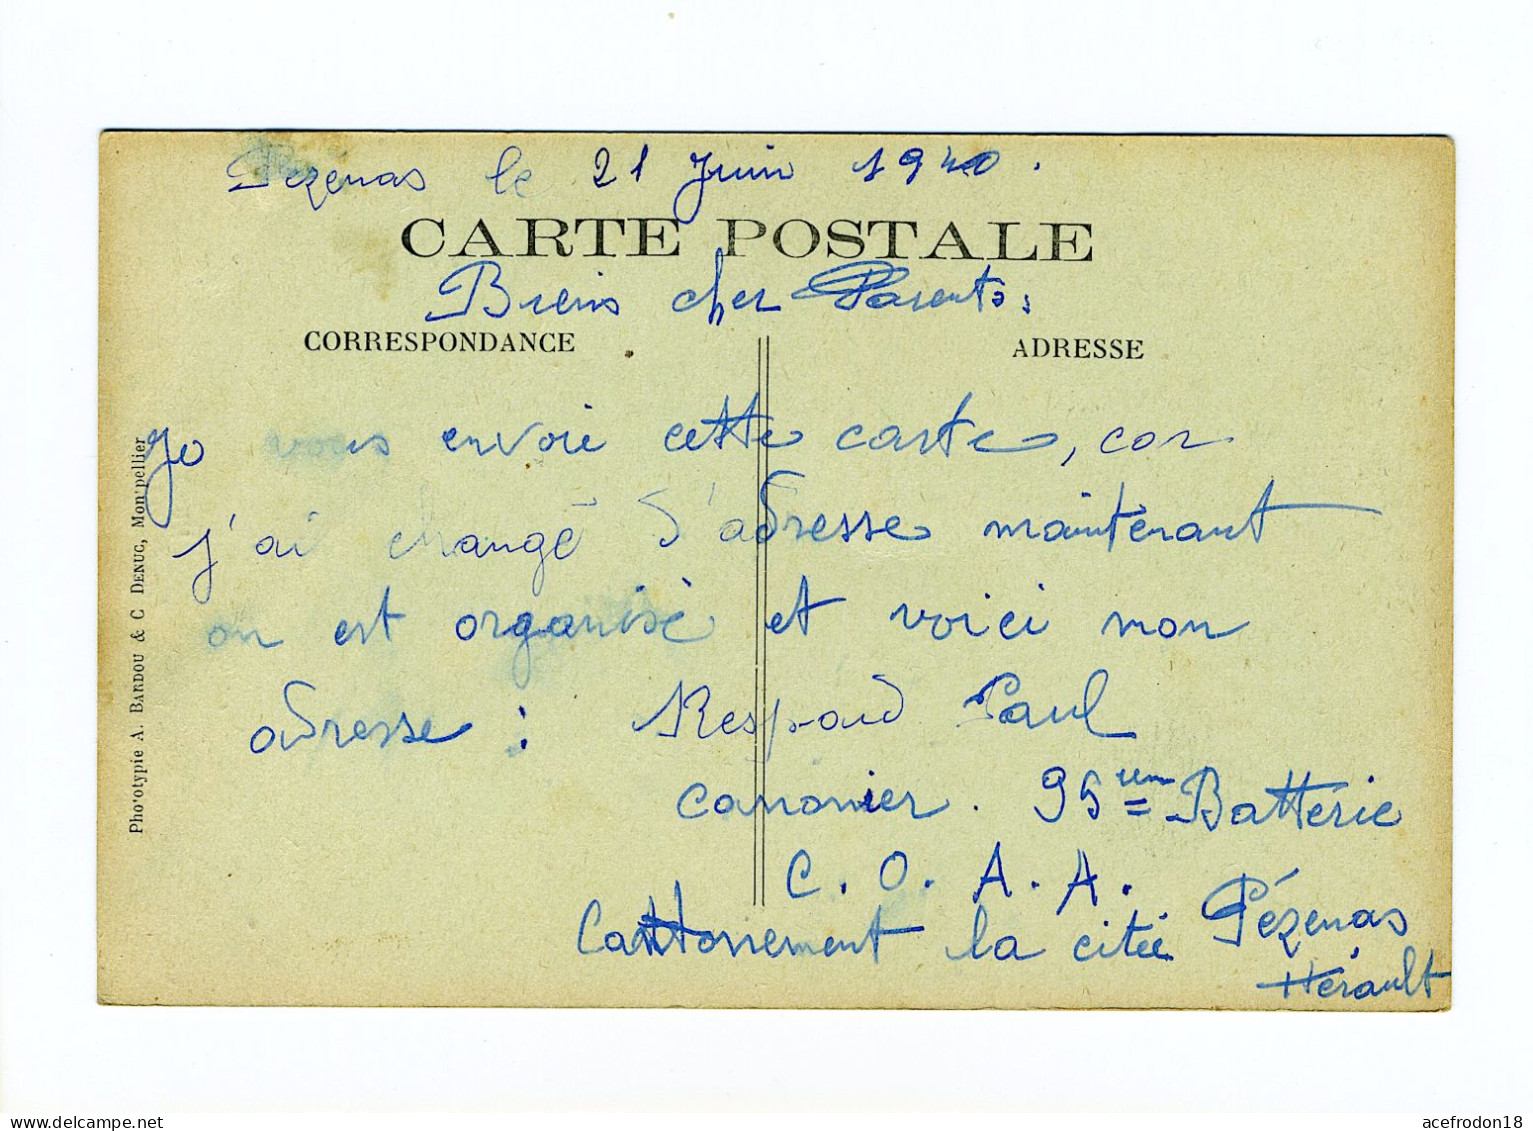 Pézenas le 21 Juin 1940.
CARTE POSTALE
Biens cher Parents,
CORRESPONDANCE
ADRESSE
Je vous envoie cette carte, car
j'ai changé d'adresse maintenant
on est organisé et voici mon
adresse : Respaud Paul
canonier. 95ème Battérie
C.O.A.A.
Canttonnement la citée Pézenas
Hérault
Phototypie A. BARDOU & C DENUC, Montpellier
acefrodon18